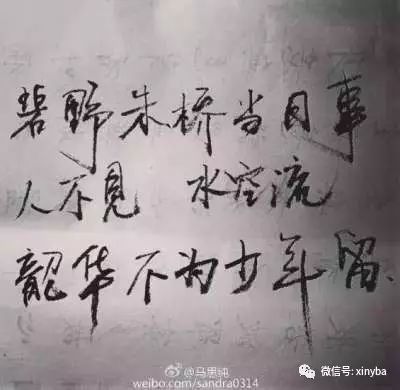 碧野朱桥当日事
人不見 水空流
韶华不为少年留.
@马思纯
weibo.com/sandra0314
微信号: xinyba